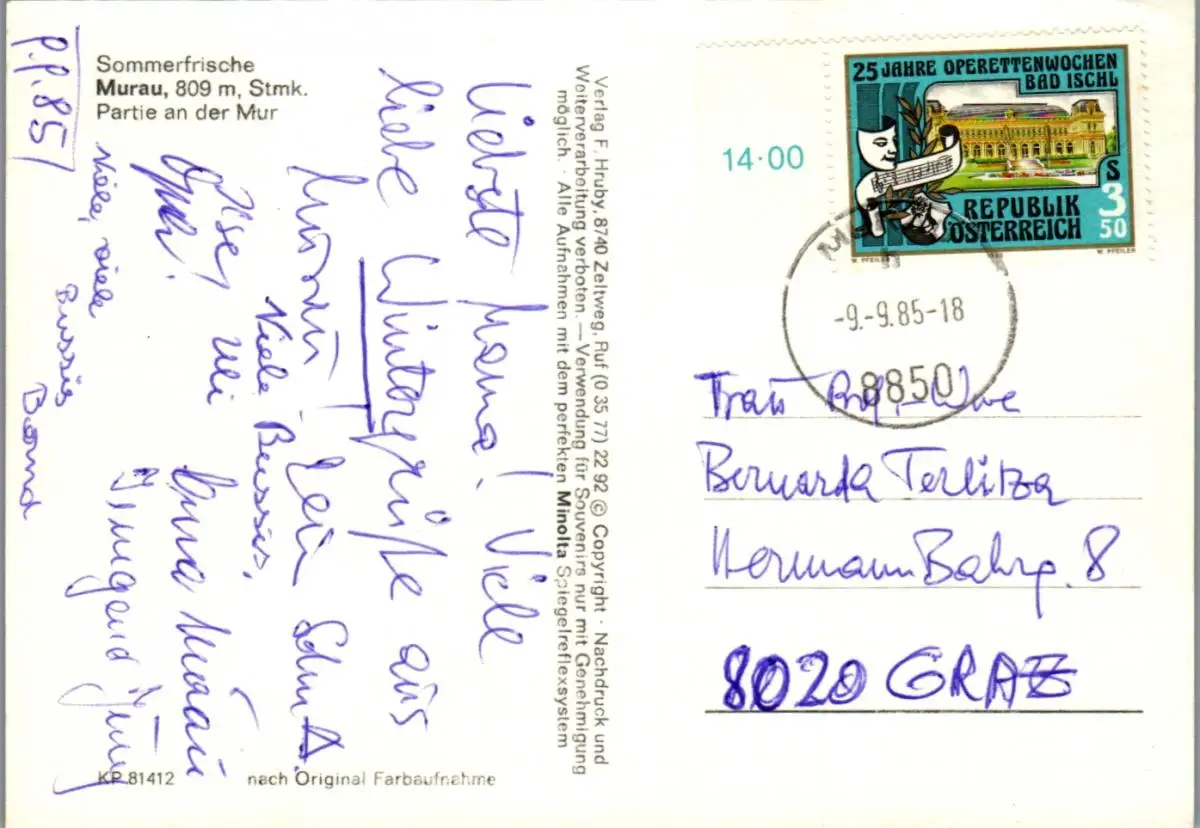 Sommerfrische
Murau, 809 m, Stmk.
Partie an der Mur
Liebste Mama! Viele
liebe Wintergrüße aus
Murau, kein Schmäh.
Viele Bussis,
Uli
viele, viele
Bussis
KP 81412 nach Original Farbaufnahme
Verlag F. Hruby, 8740 Zeltweg, Ruf (0 35 77) 22 92 © Copyright · Nachdruck und
Weiterverarbeitung verboten. — Verwendung für Souvenirs nur mit Genehmigung
möglich. · Alle Aufnahmen mit dem perfekten Minolta Spiegelreflexsystem
14·00
25 JAHRE OPERETTENWOCHEN
BAD ISCHL
S
3
50
REPUBLIK
ÖSTERREICH
W. PFEILER
-9.-9.85-18
8850
Frau Prof.-Wwe
Bernarda Terlitza
Hermann Bahrg. 8
8020 GRAZ